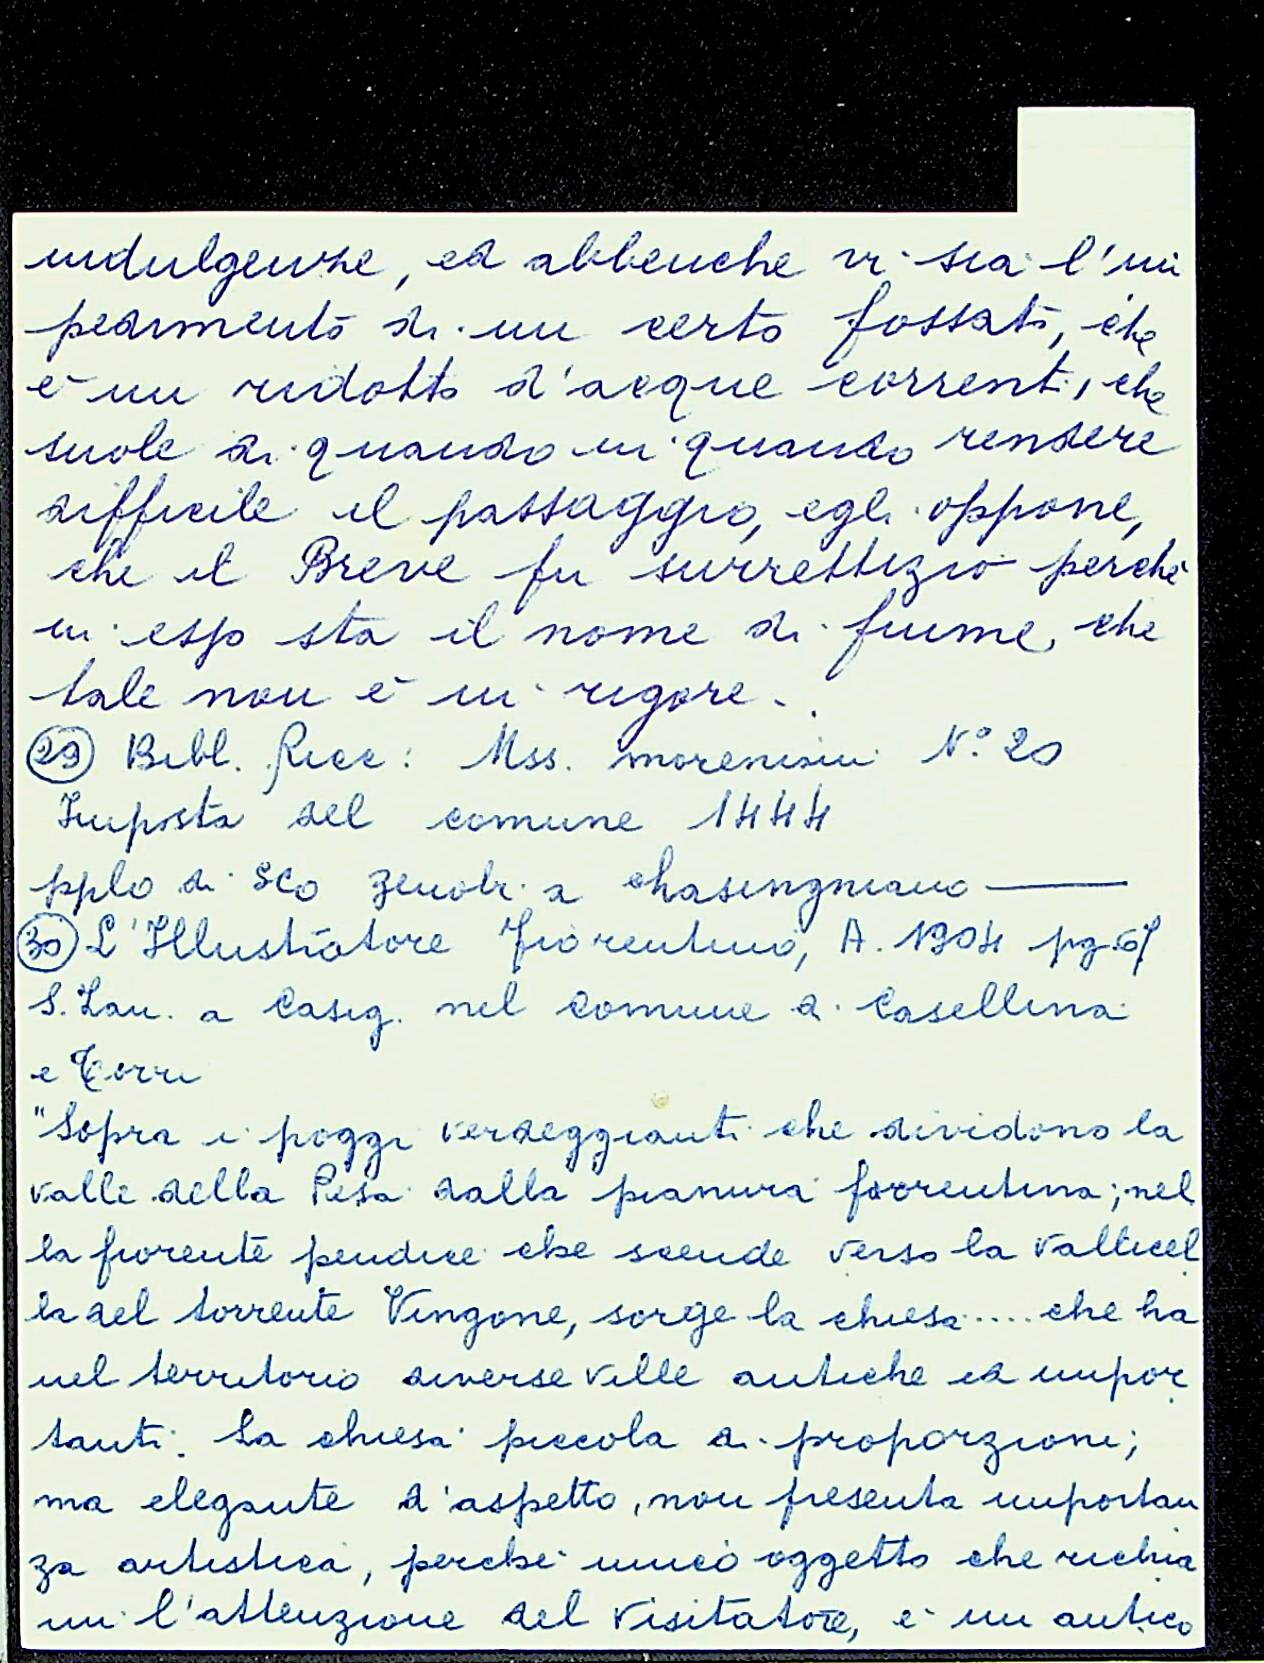 indulgenze, ed abbenche vi sia l'im
pedimento di un certo fossato, che
è un ridotto d'acque correnti, che
suole di quando in quando rendere
difficile il passaggio, egli oppone,
che il Breve fu surrettizio perchè
in esso sta il nome di fiume, che
tale non è in rigore.
(29) Bibl. Ricc: Mss. moreniani N.° 20
Imposta del comune 1444
pplo di Sco Zenobi a Chasingniano
(30) L'Illustratore Fiorentino, A. 1904 pg. 67
S. Zan. a Casig. nel comune di Casellina
e Torri
"Sopra i poggi verdeggianti che dividono la
valle della Pesa dalla pianura fiorentina; nel
la fiorente pendice che scende verso la vallicel
la del torrente Vingone, sorge la chiesa ..... che ha
nel territorio diverse ville antiche ed impor
tanti. La chiesa piccola di proporzioni;
ma elegante d'aspetto, non presenta importan
za artistica, perche unico oggetto che richia
mi l'attenzione del visitatore, e un antico